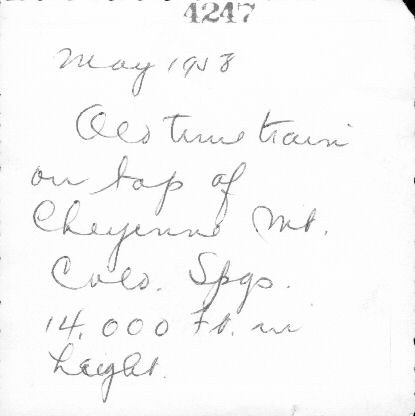 4247
May 1958
Old time train
on top of
Cheyenne Mt.
Colo. Spgs.
14,000 Ft. in
height.